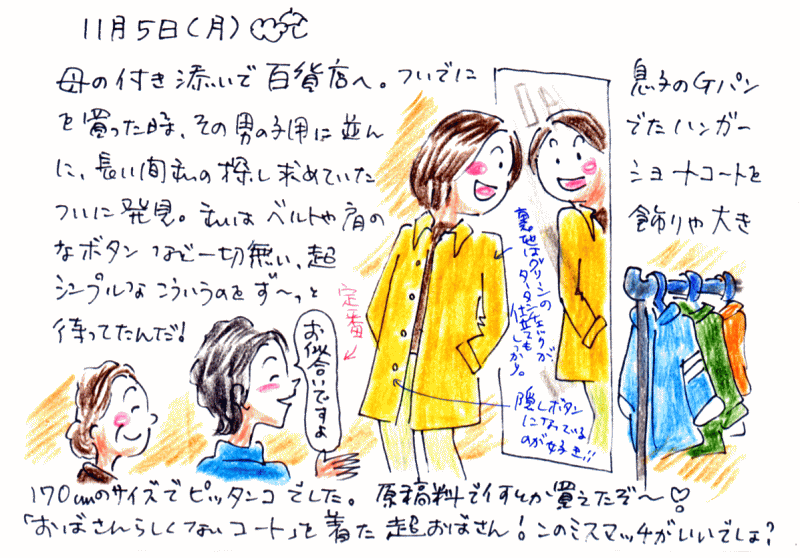 11月5日(月)
母の付き添いで百貨店へ。ついでに息子のGパン
を買った時、その男の子用に並んでたハンガー
に、長い間私の探し求めていたショートコートを
ついに発見。それはベルトや肩の飾りや大き
なボタンなど一切無い、超
シンプルなこういうのをず〜っと
待ってたんだ!
定番
お似合いですよ
裏地はグリーンの
タータンチェックが
仕立ても
しっかり。
隠しボタン
になっている
のが好き!!
170cmのサイズでピッタンコでした。原稿料で買えたぞ〜♡
「おばさんらしくないコート」を着た超おばさん!このミスマッチがいいでしょ?